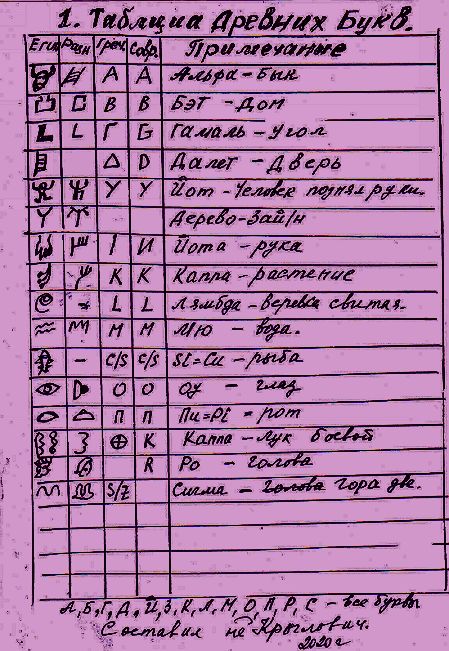 1. Таблица Древних Букв.
Егип Фин Греч. Совр. Примечание
А А Альфа - Бык
B B Бэт - Дом
Г G Гамаль - Угол
Δ D Далет - Дверь
Y Y Йот - Человек поднял руки.
Дерево - Зайін
І И Йота - рука
К К Каппа - растение
L L Лямбда - веревка свитая.
М М Мю - вода.
— C/S C/S Si = Си - рыба
О О Оу - глаз
П П Пи = Pi = рот
⊕ К Каппа - Лук боевой
R Ро - голова
S/Z Сигма - голова гора две.
А, Б, Г, Д, Й, З, К, Л, М, О, П, Р, С - все буквы
Составил Крыглович.
2020 г